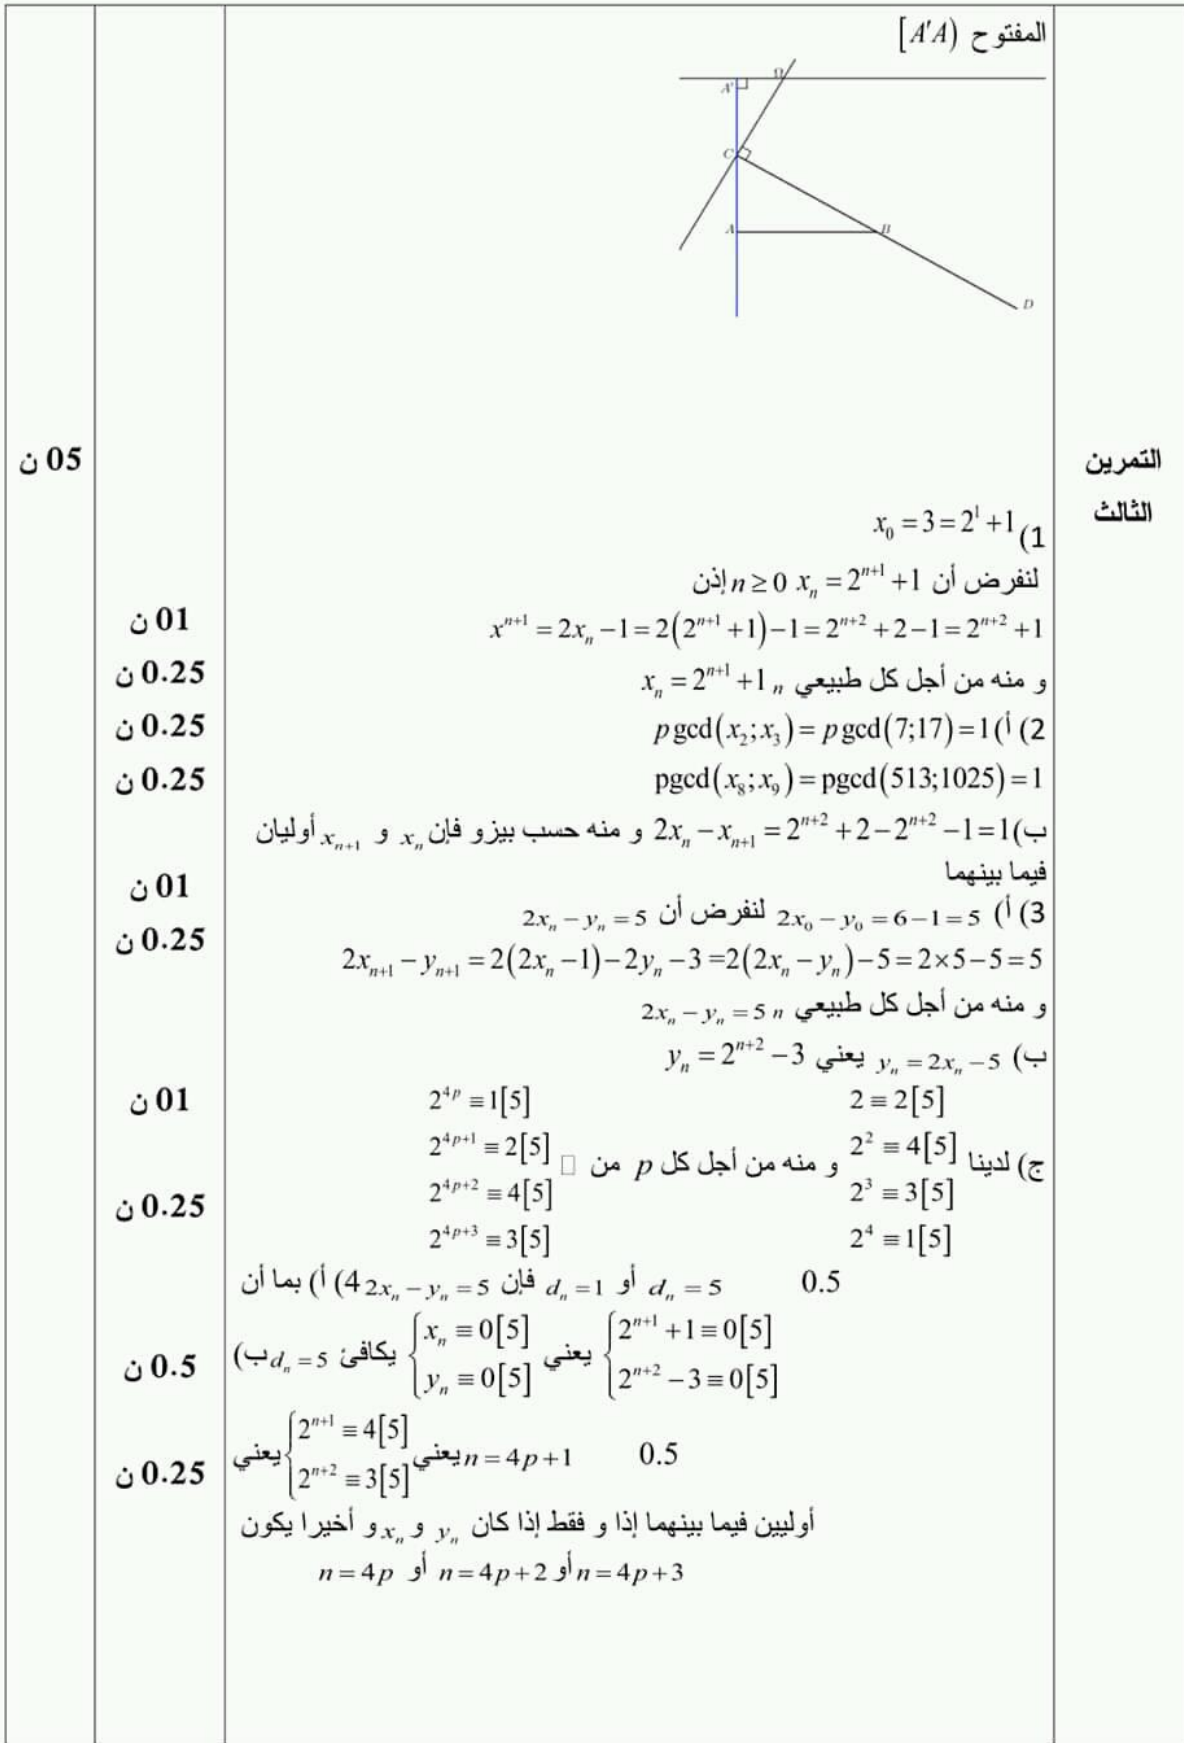 المفتوح [A'A)
Ω
A'
C
A
B
D
التمرين الثالث
05 ن
1) x₀ = 3 = 2¹ + 1
لنفرض أن xₙ = 2ⁿ⁺¹ + 1 n ≥ 0 إذن
xⁿ⁺¹ = 2xₙ − 1 = 2(2ⁿ⁺¹ + 1) − 1 = 2ⁿ⁺² + 2 − 1 = 2ⁿ⁺² + 1
01 ن
و منه من أجل كل طبيعي n xₙ = 2ⁿ⁺¹ + 1
0.25 ن
2) أ) pgcd(x₂; x₃) = pgcd(7;17) = 1
0.25 ن
pgcd(x₈; x₉) = pgcd(513;1025) = 1
0.25 ن
ب) 2xₙ − xₙ₊₁ = 2ⁿ⁺² + 2 − 2ⁿ⁺² − 1 = 1 و منه حسب بيزو فإن xₙ و xₙ₊₁ أوليان
فيما بينهما
01 ن
3) أ) 2x₀ − y₀ = 6 − 1 = 5 لنفرض أن 2xₙ − yₙ = 5
0.25 ن
2xₙ₊₁ − yₙ₊₁ = 2(2xₙ − 1) − 2yₙ − 3 = 2(2xₙ − yₙ) − 5 = 2×5 − 5 = 5
و منه من أجل كل طبيعي n 2xₙ − yₙ = 5
ب) yₙ = 2xₙ − 5 يعني yₙ = 2ⁿ⁺² − 3
01 ن
2 ≡ 2[5] 2⁴ᵖ ≡ 1[5]
ج) لدينا 2² ≡ 4[5] و منه من أجل كل p من □ 2⁴ᵖ⁺¹ ≡ 2[5]
2³ ≡ 3[5] 2⁴ᵖ⁺² ≡ 4[5]
0.25 ن
2⁴ ≡ 1[5] 2⁴ᵖ⁺³ ≡ 3[5]
4) أ) بما أن 2xₙ − yₙ = 5 فإن dₙ = 1 أو dₙ = 5 0.5
ب) dₙ = 5 يكافئ {xₙ ≡ 0[5] ; yₙ ≡ 0[5] يعني {2ⁿ⁺¹ + 1 ≡ 0[5] ; 2ⁿ⁺² − 3 ≡ 0[5]
0.5 ن
يعني {2ⁿ⁺¹ ≡ 4[5] ; 2ⁿ⁺² ≡ 3[5] يعني n = 4p + 1 0.5
0.25 ن
و أخيرا يكون xₙ و yₙ أوليين فيما بينهما إذا و فقط إذا كان
n = 4p أو n = 4p + 2 أو n = 4p + 3